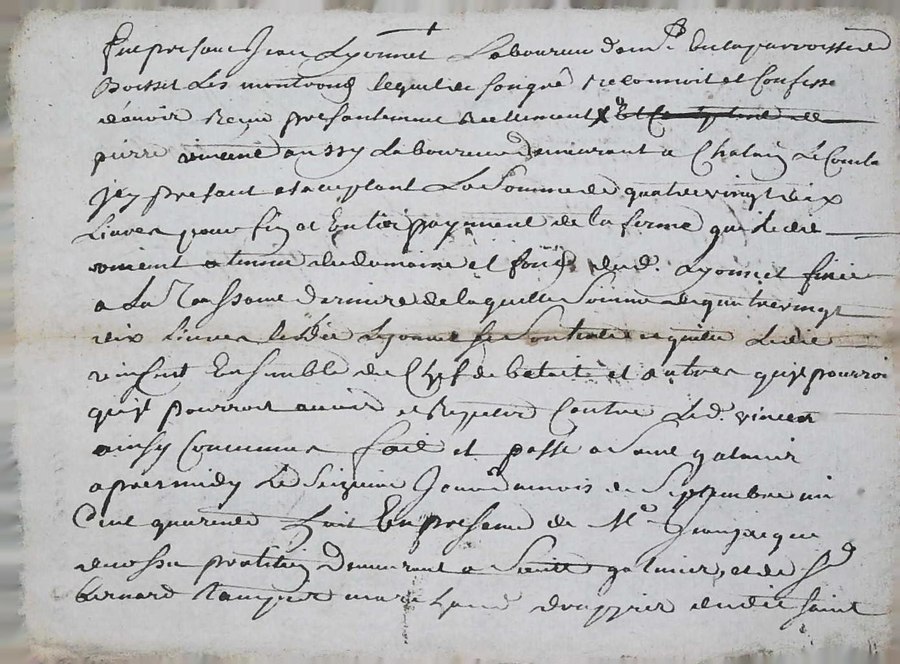 fut presant Jean Lyonnet Laboureur dem.t en la parroisse de
Boisset Les montrond lequel de son gré reconnoit et Confesse
d'avoir Reçu presantement Reellement &
pierre vincent aussy Laboureur demeurant a Chalain Le Comta
Jcy presant et aceptant La Somme de quatre vingt dix
Livres pour fin et Entier payement de la ferme que ledit
vincent a tenue du domaine et fond dud. Lyonnet finie
a La Toussaint derniere de laquelle Somme de quatre vingt
dix Livres ledit Lyonnet se Contente et quitte Ledit
vincent Ensemble de Chef de betail et autres qu'il pourroi
qu'il pourroit avoir a Repeter Contre Led. vincent
ainsy Convenu fait et passé a Saint galmier
apres midy Le Seizieme Jour du mois de Septembre mil
Cent quarente huit En presence de M.e Jeanjacque
praticien demeurant a Saint galmier, et de S.r
bernard marchand drappier dudit Saint